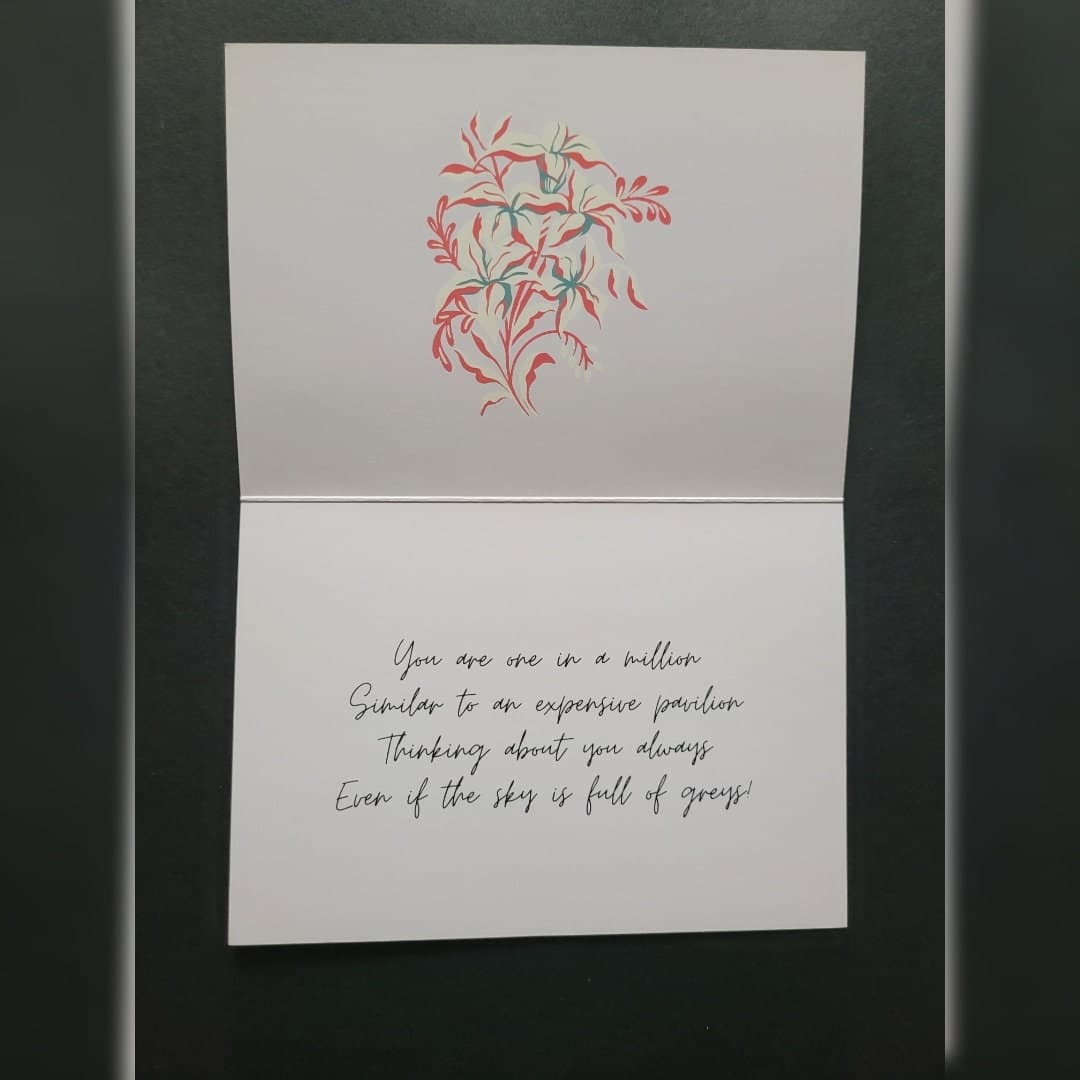 You are one in a million
Similar to an expensive pavilion
Thinking about you always
Even if the sky is full of greys!